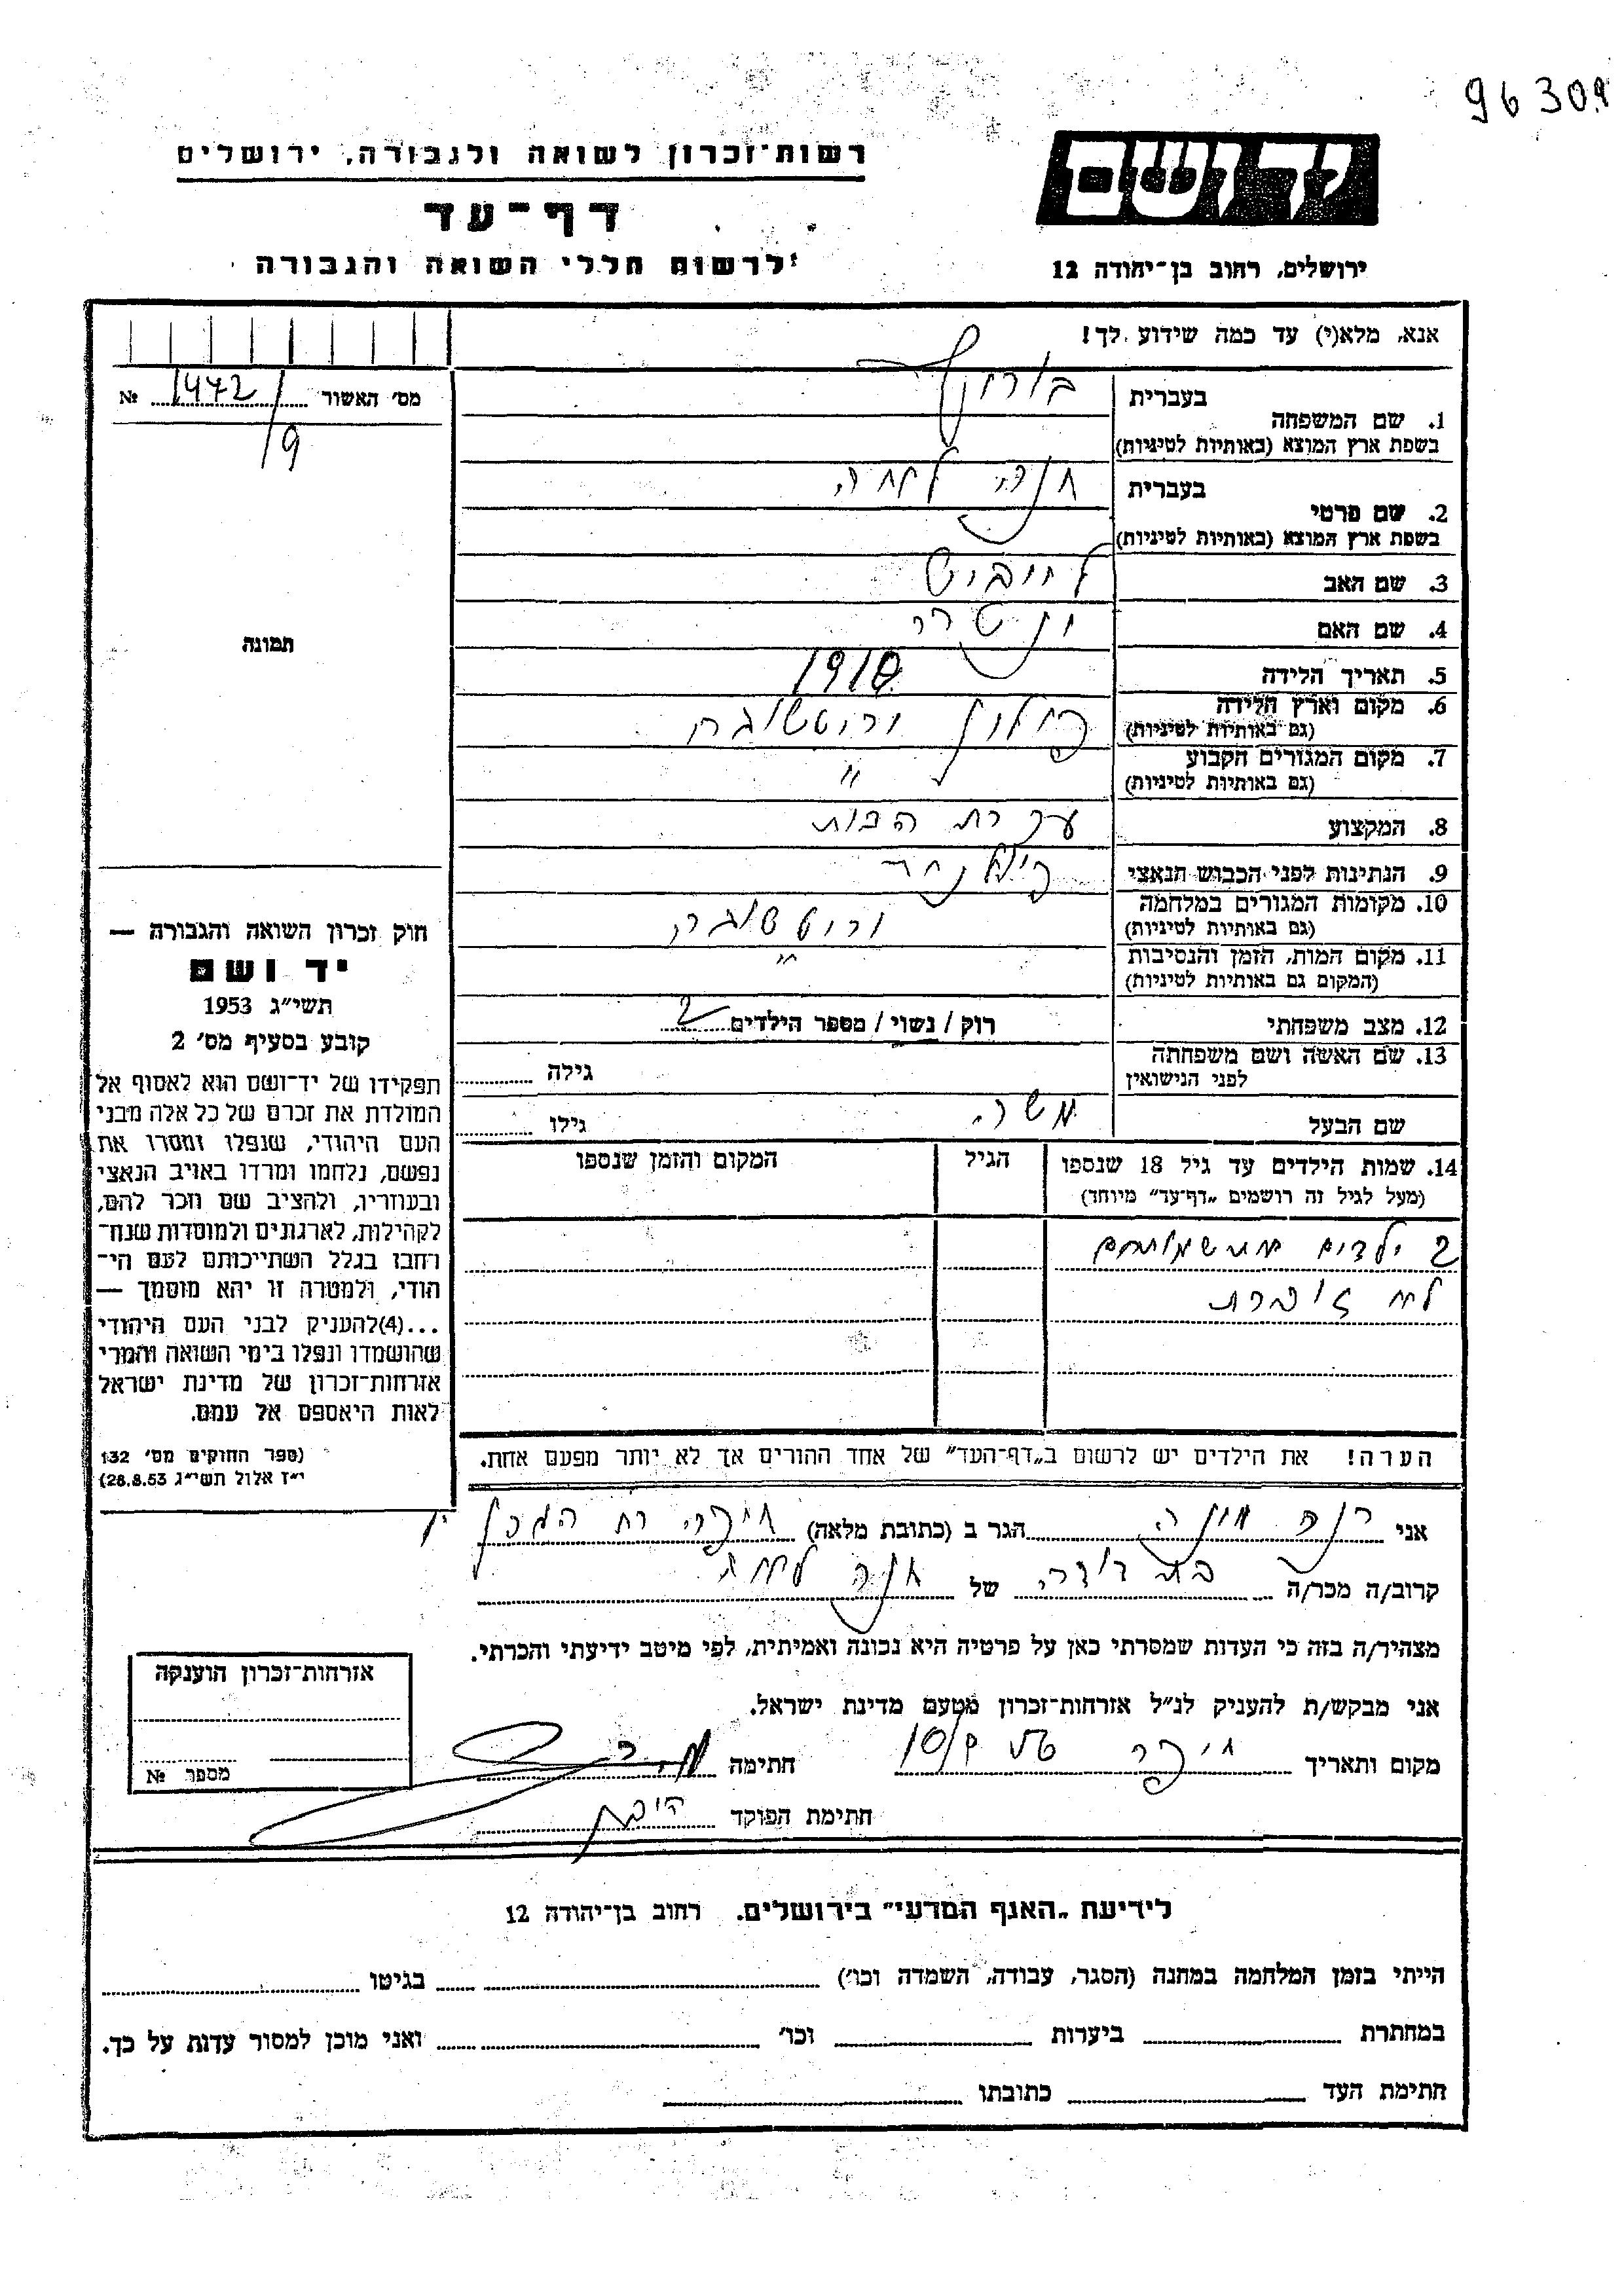 96309
רשות־זכרון לשואה ולגבורה, ירושלים
יד ושם
דף־עד
לרשום חללי השואה והגבורה
ירושלים, רחוב בן־יהודה 12
אנא, מלא(י) עד כמה שידוע לך!
מס׳ האשור 1472/9 №
תמונה
1. שם המשפחה
בעברית
בשפת ארץ המוצא (באותיות לטיניות)
2. שם פרטי
בעברית חנה
בשפת ארץ המוצא (באותיות לטיניות)
3. שם האב לייביש
4. שם האם
5. תאריך הלידה 1910
6. מקום וארץ הלידה פולין
(גם באותיות לטיניות)
7. מקום המגורים הקבוע "
(גם באותיות לטיניות)
8. המקצוע עקרת הבית
9. הנתינות לפני הכבוש הנאצי פולנית
10. מקומות המגורים במלחמה
(גם באותיות לטיניות)
11. מקום המות, הזמן והנסיבות "
(המקום גם באותיות לטיניות)
12. מצב משפחתי רוק / נשוי / מספר הילדים 2
13. שם האשה ושם משפחתה
לפני הנישואין
גילה
שם הבעל משה גילו
14. שמות הילדים עד גיל 18 שנספו
(מעל לגיל זה רושמים „דף־עד" מיוחד)
הגיל
המקום והזמן שנספו
2 ילדים
לא זוכרת
הערה! את הילדים יש לרשום ב„דף־העד" של אחד ההורים אך לא יותר מפעם אחת.
חוק זכרון השואה והגבורה —
יד ושם
תשי״ג 1953
קובע בסעיף מס׳ 2
תפקידו של יד־ושם הוא לאסוף אל
המולדת את זכרם של כל אלה מבני
העם היהודי, שנפלו ומסרו את
נפשם, נלחמו ומרדו באויב הנאצי
ובעוזריו, ולהציב שם וזכר להם,
לקהילות, לארגונים ולמוסדות שנח־
רחבו בגלל השתייכותם לעם הי־
הודי, ולמטרה זו יהא מוסמך —
...(4)להעניק לבני העם היהודי
שהושמדו ונפלו בימי השואה והמרי
אזרחות־זכרון של מדינת ישראל
לאות היאספם אל עמם.
(ספר החוקים מס׳ 132
י״ז אלול תשי״ג 28.8.53)
אני הגר ב (כתובת מלאה) חיפה רח
קרוב/ה מכר/ה בת דודה של חנה
מצהיר/ה בזה כי העדות שמסרתי כאן על פרטיה היא נכונה ואמיתית, לפי מיטב ידיעתי והכרתי.
אני מבקש/ת להעניק לנ״ל אזרחות־זכרון מטעם מדינת ישראל.
מקום ותאריך חיפה חתימה
חתימת הפוקד
אזרחות־זכרון הוענקה
מספר №
לידיעת „האגף המדעי" בירושלים. רחוב בן־יהודה 12
הייתי בזמן המלחמה במחנה (הסגר, עבודה, השמדה וכו׳) בגיטו
במחתרת ביערות וכו׳ ואני מוכן למסור עדות על כך.
חתימת העד כתובתו